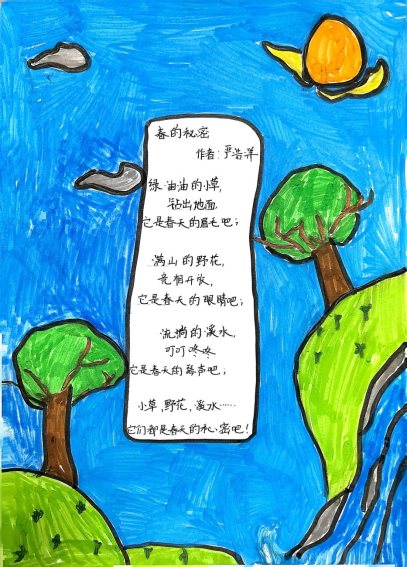 春的秘密
作者：严浩洋
绿油油的小草，
钻出地面，
它是春天的眉毛吧；
满山的野花，
竞相开放，
它是春天的眼睛吧；
流淌的溪水，
叮叮咚咚
它是春天的琴声吧；
小草，野花，溪水……
它们都是春天的秘密吧！